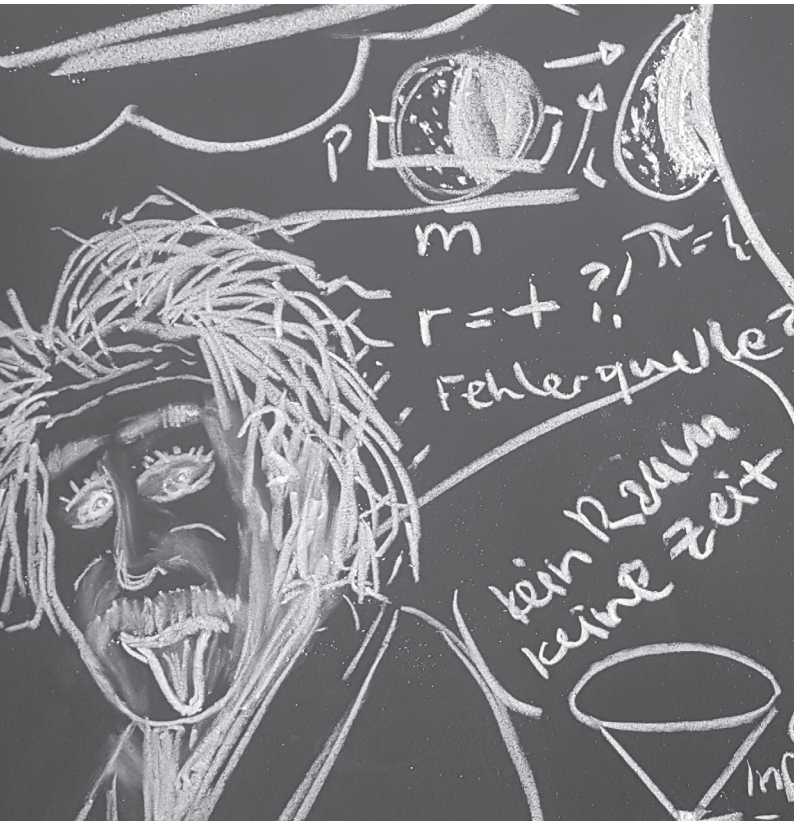 P
m
π=
r=+ ?
Fehlerquelle?
kein Raum
keine Zeit